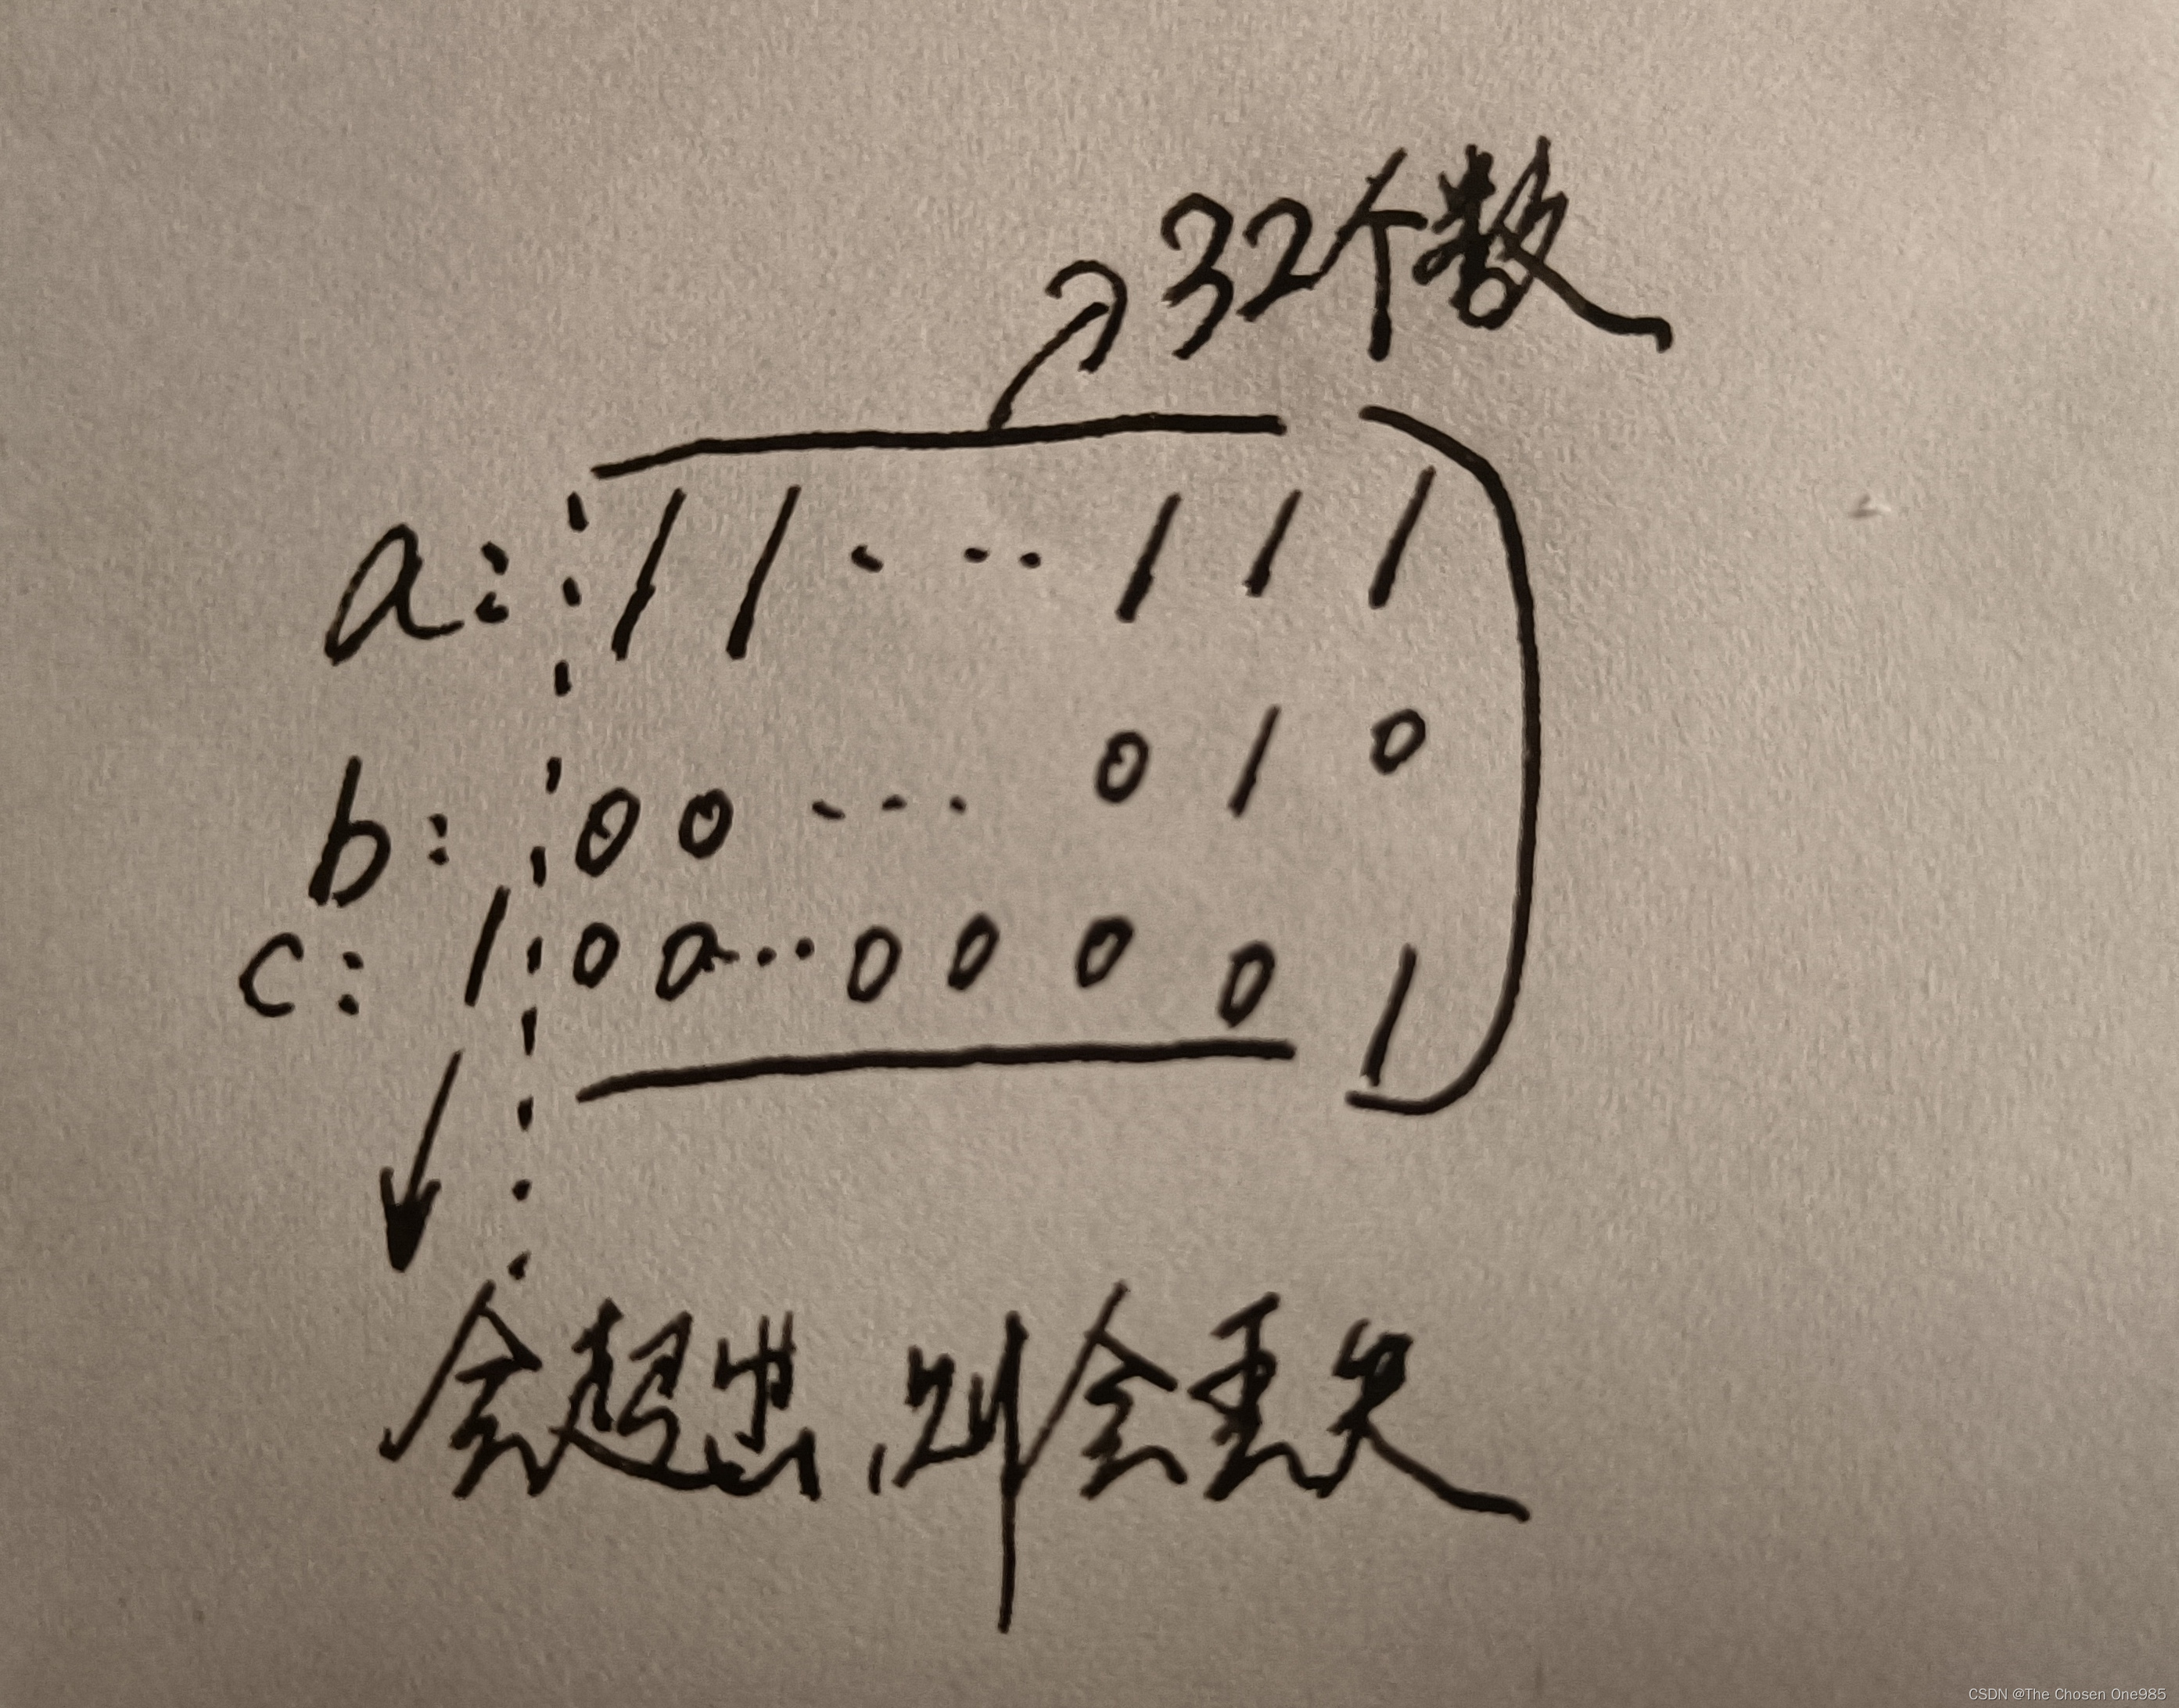 32个数
a: 11...111
b: 00...010
c: 100...00001
会超出,则会丢失
CSDN @The Chosen One985